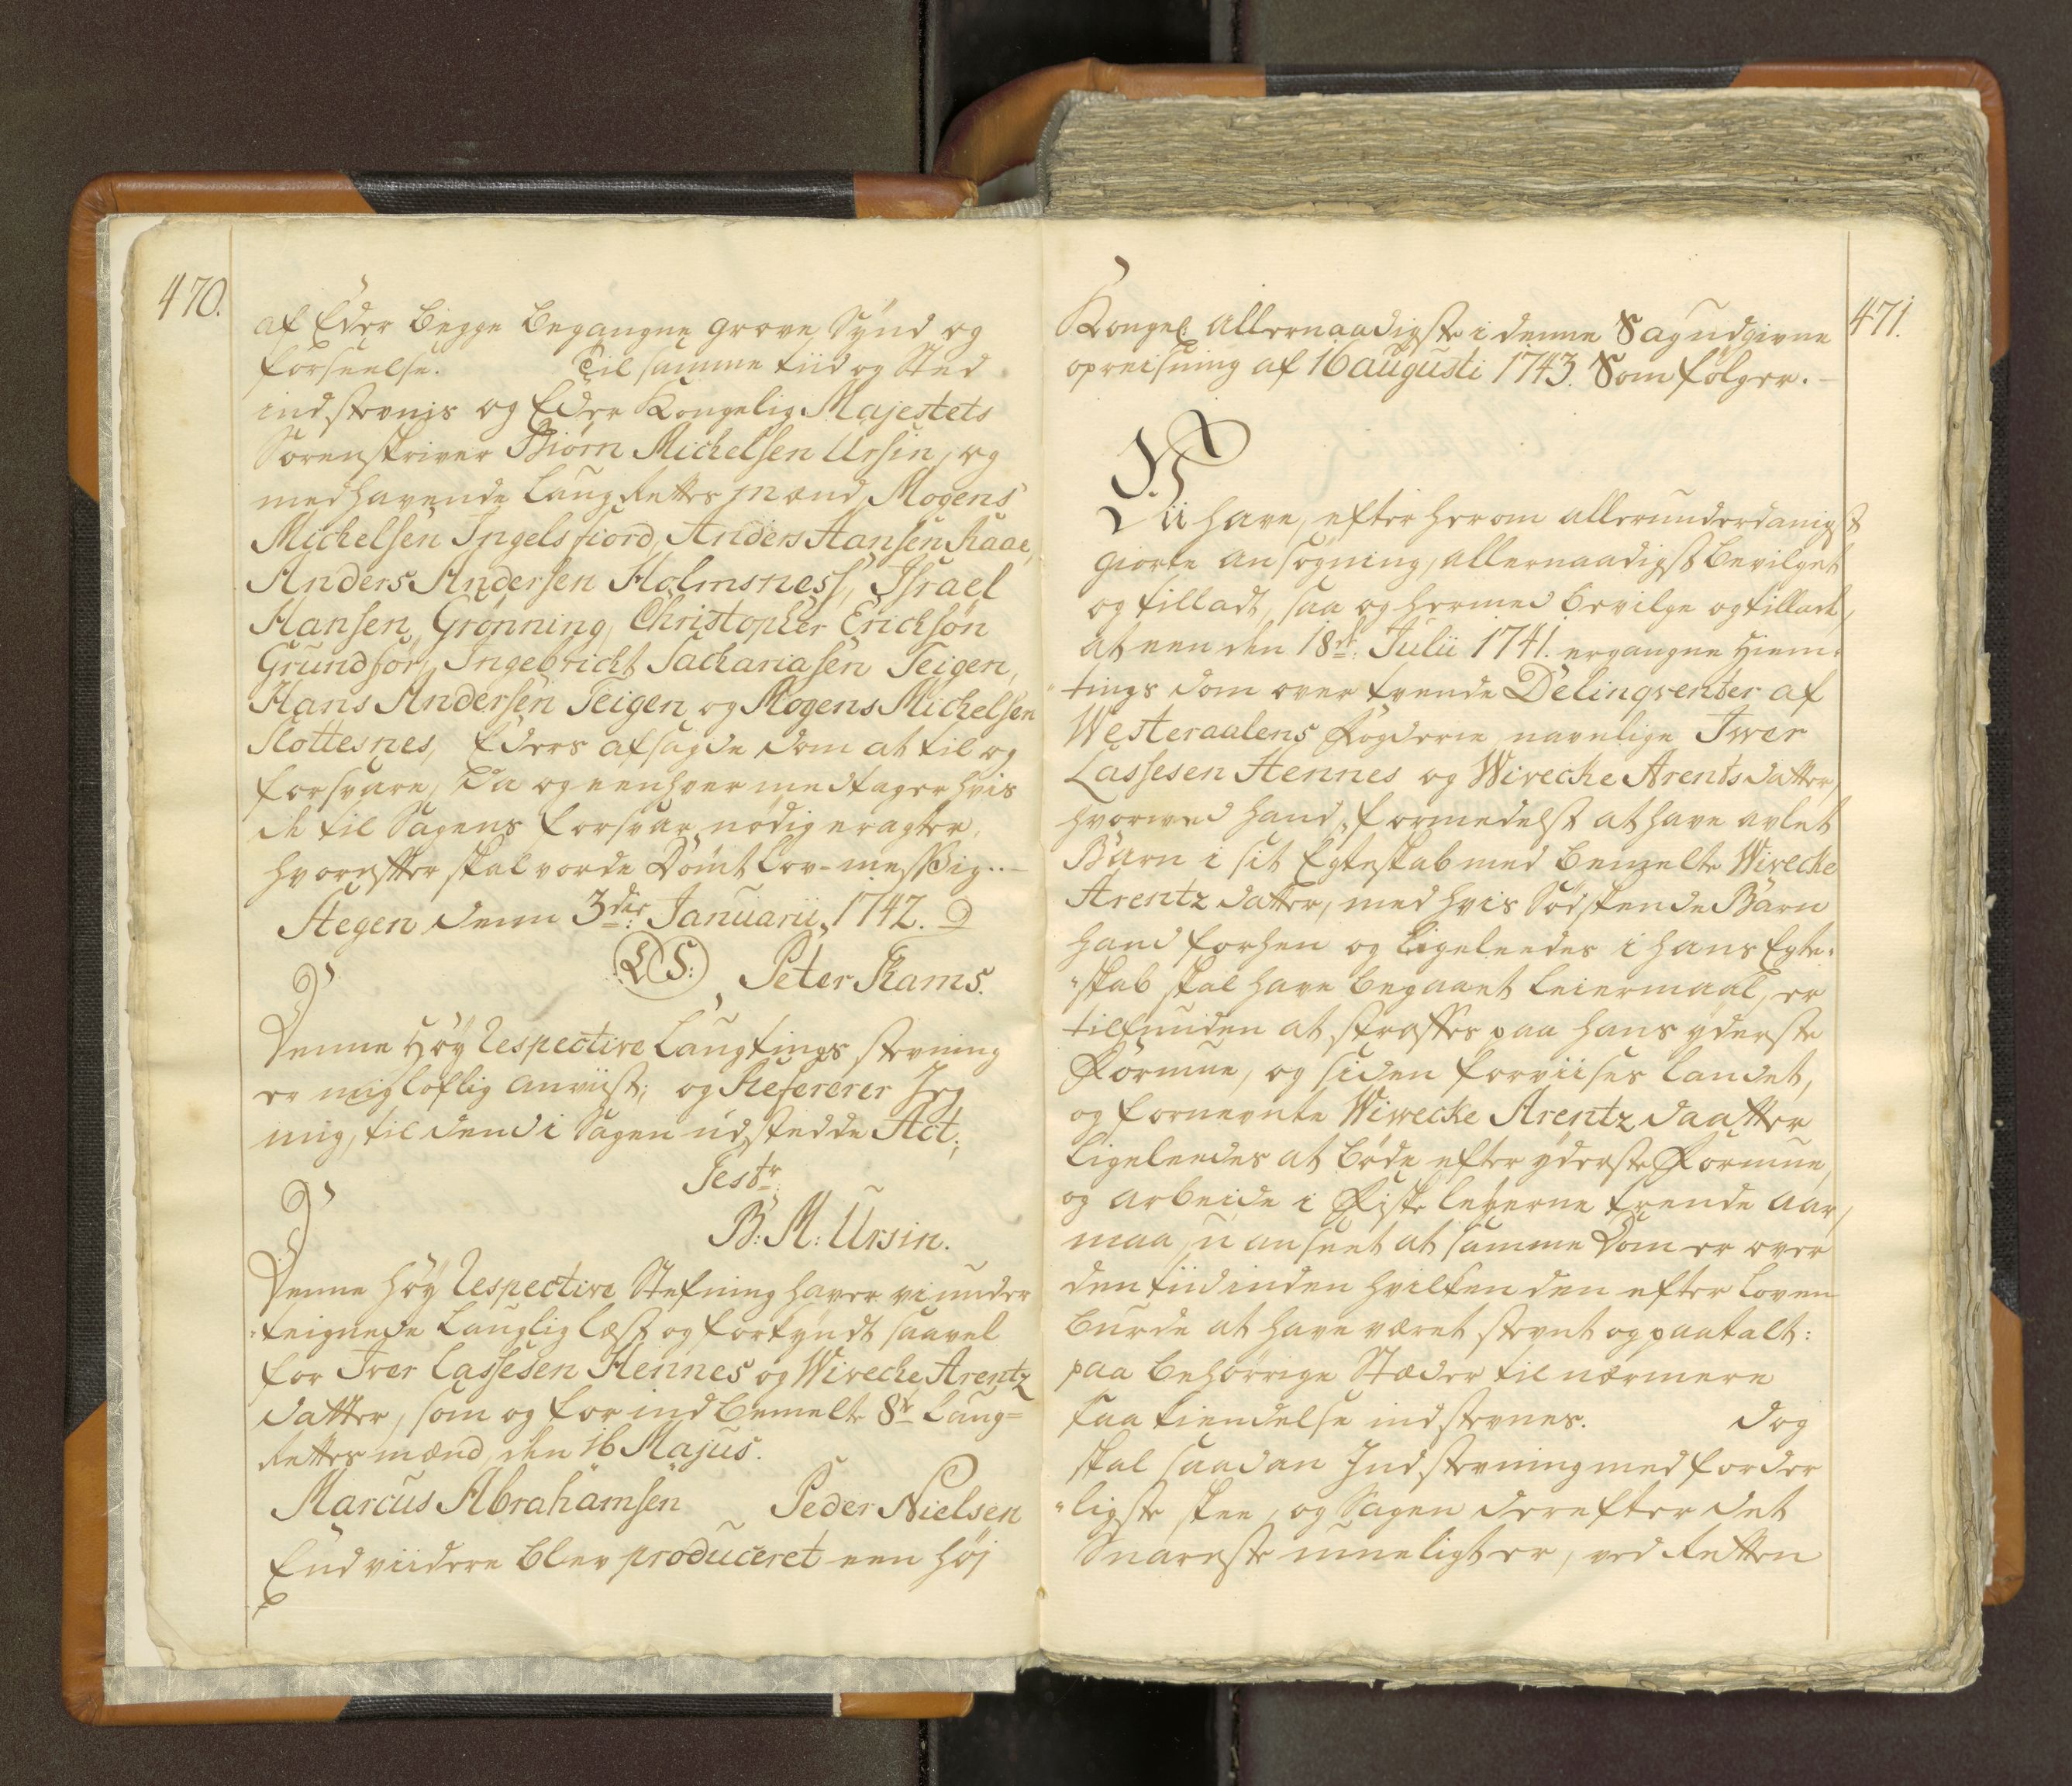 470.
af Eder begge begangne grove Synd og
forseelse. Til samme tiid og Sted
indstevnis og Eder Kongelig Majestets
Sorenskriver Biørn Michelsen Ursin, og
medhavende Laug Rettes mænd, Mogens
Michelsen Ingelsfiord, Anders Hansen Raae,
Anders Andersen Holmsness, Israel
Hansen Grønning, Christopher Erichsøn
Grundfør, Ingebricht Sachariasen Teigen,
Hans Andersen Teigen og Mogens Michelsen
Slottesnes, Eders afsagde dom at til og
forsvare, Da og eenhver medtager hvis
de til Sagens forsvar nødig eragter,
hvorefter skal vorde Dømt Lov-messig..-
Stegen denn 3die Januarii, 1742.
L S: Peter Rams.
Denne Høy Respective Laugtings stevning
er mig loflig anviist; og Refererer Jeg
mig, til dend i Sagen udstedde Act;
Testr:
B: M: Ursin.
Denne høy Respective Stefning haver vi under
-teignede Lauglig læst og forkyndt saavel
for Iver Lassesen Hennes og Wivecke Arentz
datter, som og for indbemelte 8te Laug=
Rettes mænd, den 16 Majus.
Marcus Abrahamsen Peder Nielsen
End viidere blev produceret een høj
471.
Kongel: allernaadigste i denne Sag udgivne
opreisning af 16 augusti 1743. Som følger.-
Vii have, efter herom allerunderdanigst
giorte ansøgning, allernaadigst bevilget
og tilladt, saa og hermed bevilge og tillade,
at een den 18de: Julii 1741. ergangne Hiem-
-tings dom over tvende Delinqventer af
Westeraalens Fogderie, navnlige Iver
Lassesen Hennes og Wivecke Arents datter,
hvorved hand, formedelst at have avlet
Barn i sit Egteskab med bemelte Wivecke
Arentz datter, med hvis Sødskende Barn
hand forhen og ligeleedes i hans Egte-
-skab skal have begaaet Leiermaal, er
tilfunden at straffes paa hans yderste
Formue, og siden forviises Landet,
og fornevnte Wivecke Arentz daatter
ligeleedes at bøde efter yderste Formue,
og arbeide i Fiske leyerne trende aar,
maa, u anseet at samme Dom er over
den tiid inden hvilken den efter Loven
burde at have været stevnt og paatalt:
paa behørrige Stæder til nærmere
paa kiendelse indstevnes. dog
skal saadan Indstevning med forder
-ligste skee, og Sagen derefter det
Snareste mueligt er, ved Retten